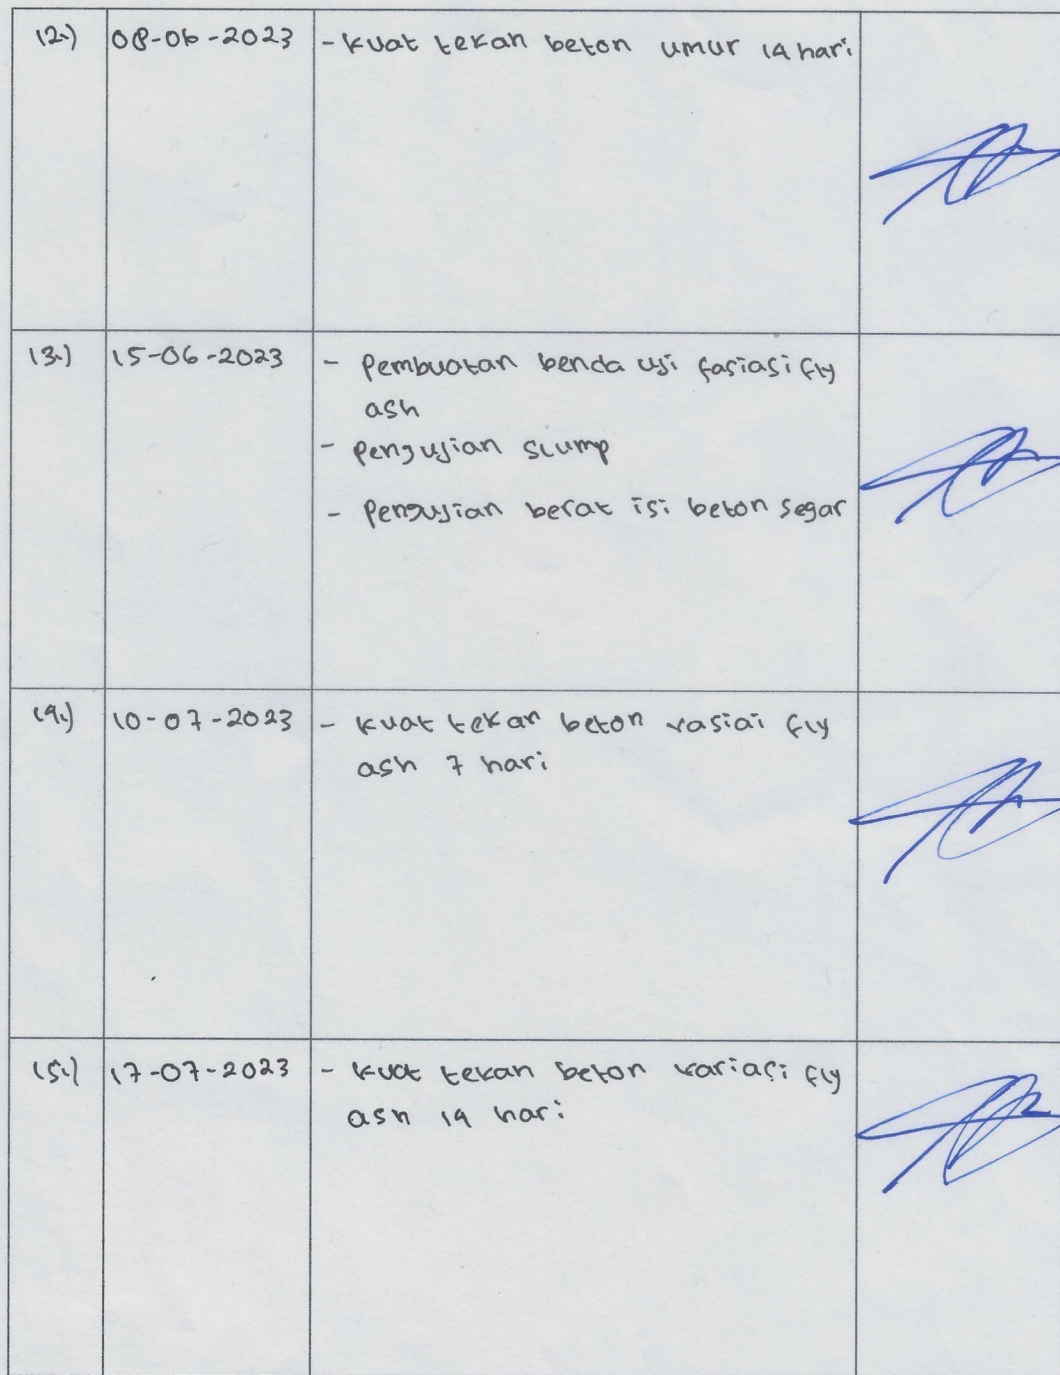 12.) 08-06-2023 - Kuat tekan beton umur 14 hari
13.) 15-06-2023 - Pembuatan benda uji fariasi fly
ash
- Pengujian slump
- Pengujian berat isi beton segar
14.) 10-07-2023 - Kuat tekan beton vasiai fly
ash 7 hari
15.) 17-07-2023 - Kuat tekan beton variasi fly
ash 14 hari